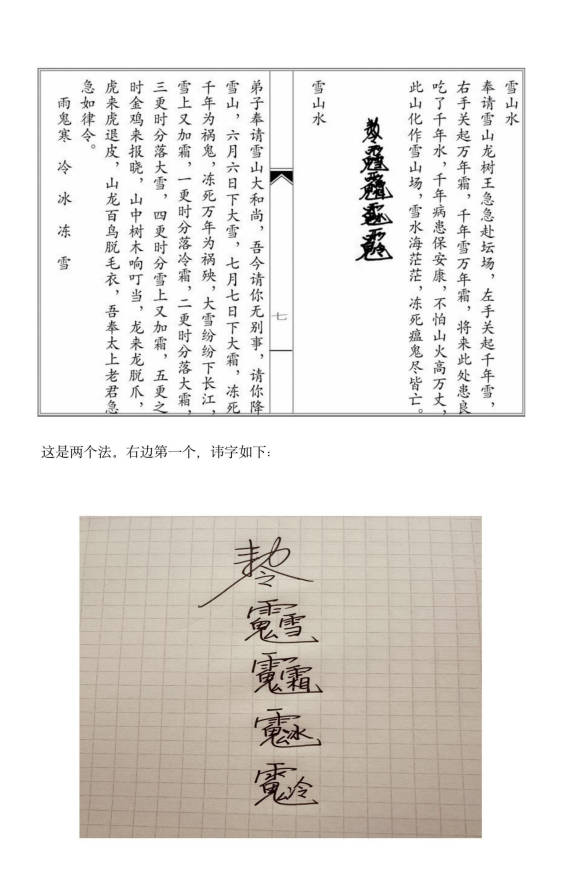 雪山水
奉请雪山龙树王急急赴坛场，左手关起千年雪，
右手关起万年霜，千年雪万年霜，将来此处患良
吃了千年水，千年病患保安康，不怕山火高万丈，
此山化作雪山场，雪水海茫茫，冻死瘟鬼尽皆亡。
雪山水
七
弟子奉请雪山大和尚，吾今请你无别事，请你降
雪山，六月六日下大雪，七月七日下大霜，冻死
千年为祸鬼，冻死万年为祸殃，大雪纷纷下长江，
雪上又加霜，一更时分落冷霜，二更时分落大霜，
三更时分落大雪，四更时分雪上又加霜，五更之
时金鸡来报晓，山中树木响叮当，龙来龙脱爪，
虎来虎退皮，山龙百鸟脱毛衣，吾奉太上老君急
急如律令。
雨鬼寒 冷 冰 冻 雪
这是两个法，右边第一个，讳字如下：